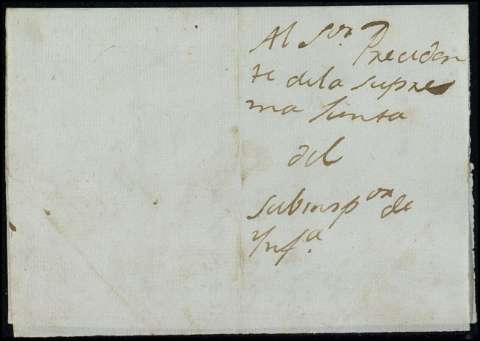 Al Sor. Preciden
te dela supre
ma Junta
del
subinspor. de
Ynfa.